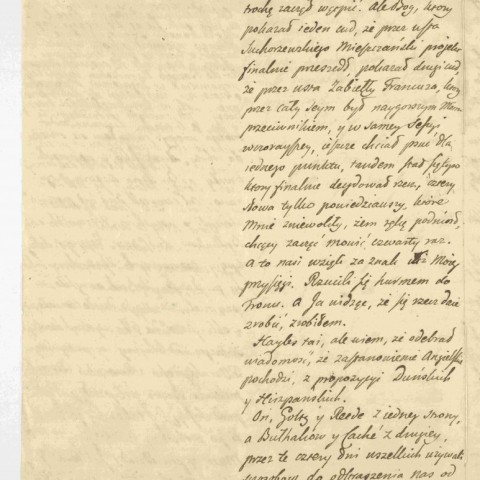 trochę zacząć wątpić. Ale Bóg, ktory
pokazał ieden cud, że przez usta
Suchorzewskiego Mieszczański projekt
finalnie przeszedł, pokazał drugi cud,
że przez usta Zabiełły Francuza, ktory
przez cały Seym był naygorszym Mnie
przeciwnikiem, y w samey Sessyi
wczorayszey, ieszcze chciał psuć dla
iednego punktu, tandem stał się tym
ktory finalnie decydował rzecz, cztery
słowa tylko powiedziawszy, ktore
Mnie zniewoliły, żem rękę podniosł,
chcący zacząć mowić czwarty raz.
a to nasi wzięli za znak iuż Moiey
przysięgi. Rzucili się hurmem do
Tronu. a Ja widząc, że się rzecz daie
zrobić, zrobiłem.
Hayles tai, ale wiem, że odebrał
wiadomość, że zastanowienie Angielskie
pochodzi, z propozycyi Duńskich
y Hiszpańskich.
Ori, Goltz y Reede z iedney strony,
a Buthakow y Caché z drugiey,
przez te cztery dni wszelkich używali
sposobow do odstraszenia nas od